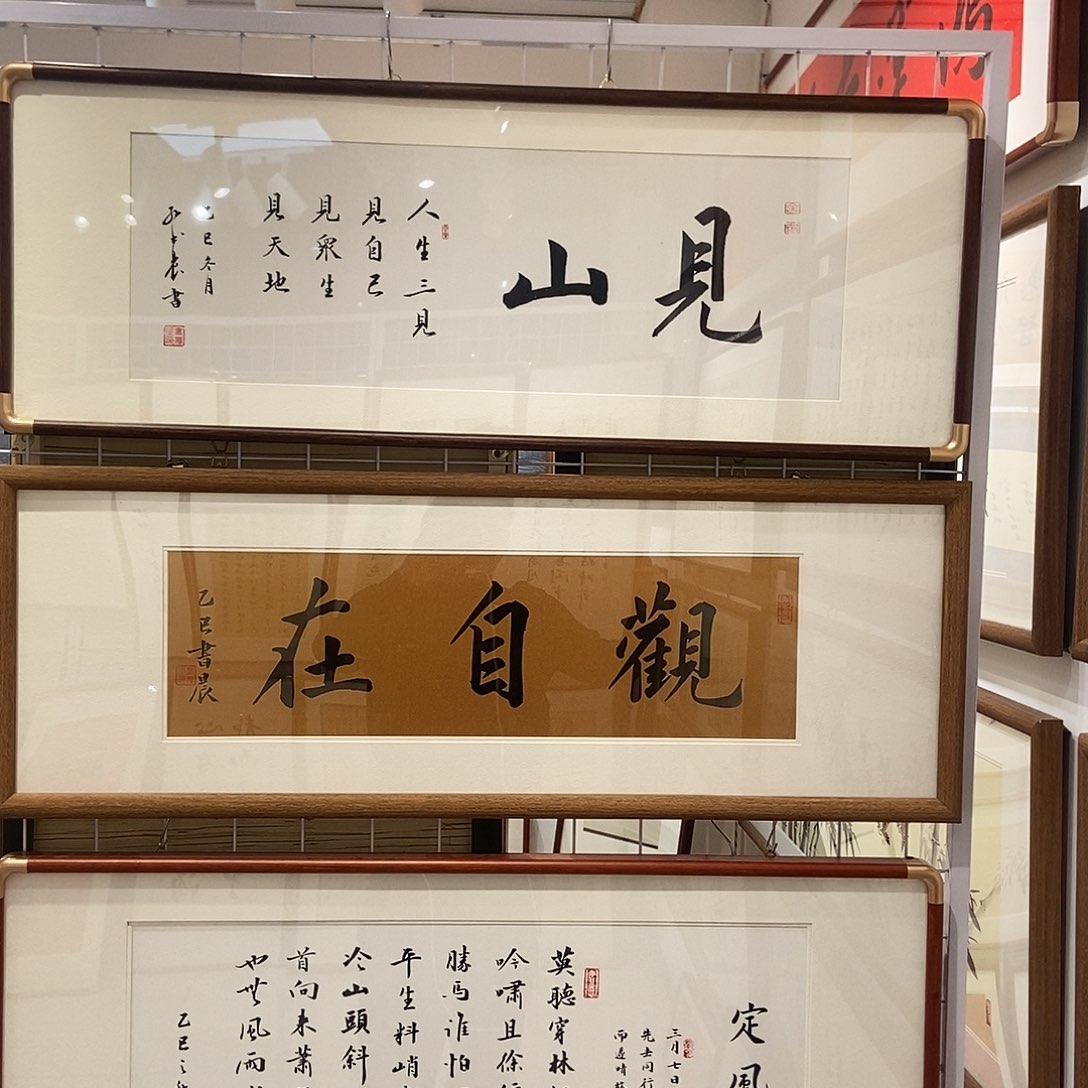 見山
人生三見
見自己
見衆生
見天地
乙巳冬月
書
觀自在
乙巳書晨
定風
三月七日
同行
莫聽穿林
吟嘯且徐
勝馬誰怕
平生料峭
冷山頭斜
首向来蕭
也無風雨
乙巳之